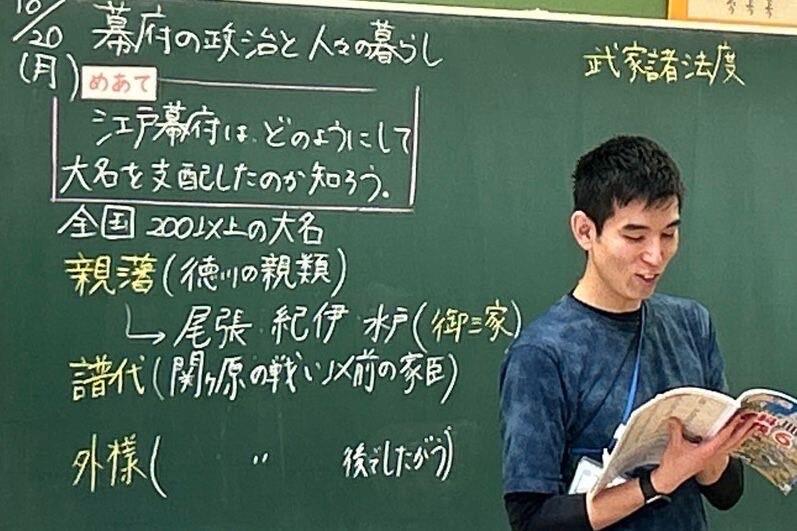 10/20
(月)
幕府の政治と人々の暮らし
めあて
江戸幕府は、どのようにして
大名を支配したのか知ろう。
全国 200以上の大名
親藩(徳川の親類)
↳ 尾張 紀伊 水戸(御三家)
譜代(関ヶ原の戦い以前の家臣)
外様( 〃 後でしたがう)
武家諸法度
6